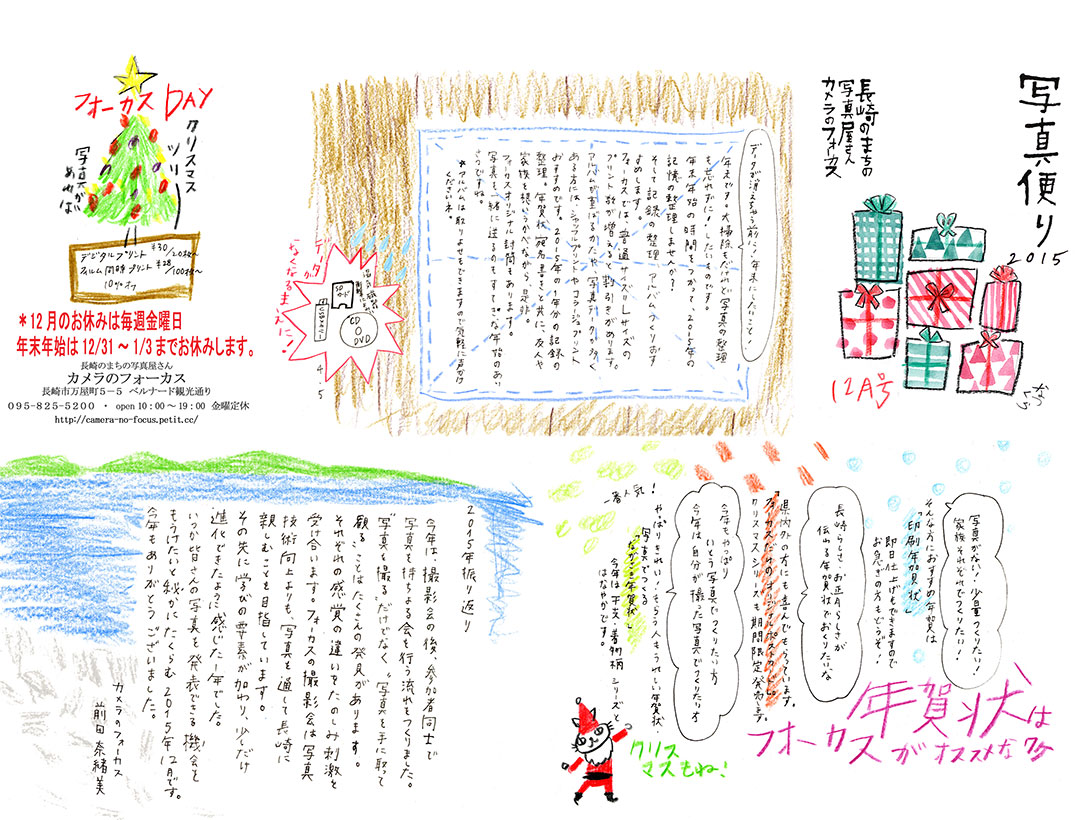 写真便り
2015
長崎のまちの
写真屋さん
カメラのフォーカス
12A号
データが消えちゃう前に、年末にしたいこと!
年末です。大掃除もだけれど、写真の整理
も忘れずに!したいものです。
年末年始の時間をつかって、2015年の
記憶の整理しませんか?
そして記録の整理、アルバムづくりおす
すめします。
フォーカスでは、普通サイズ=Lサイズの
プリント数が増えると割引きがあります。
アルバムが重ばるかたや、写真データが多く
ある方には、シャッフルプリントやコラージュプリント
おすすめです。2015年の1年分の記録の
整理。年賀状の宛名書きと共に、友人や
家族を想いうかべながら、是非。
フォーカスオリジナル封筒もあります。
写真を一緒に送るのもすてきな年始のあい
さつですね。
*アルバムは取りよせもできますので気軽に声かけ
くださいネ。
データが
なくなるまえに!
SDカード
USBメモリー
CD
O
DVD
4.5
フォーカス DAY
クリスマス
ツリー
写真がい
あれば
デジタルプリント ¥30/20枚~
フィルム同時プリント ¥28/100枚~
10%オフ
*12月のお休みは毎週金曜日
年末年始は12/31~1/3までお休みします。
長崎のまちの写真屋さん
カメラのフォーカス
長崎市万屋町5-5 ベルナード観光通り
095-825-5200 ・ open10:00~19:00 金曜定休
http://camera-no-focus.petit.cc/
年賀状は
フォーカスがオススメなワケ
写真がない!少量つくりたい!
家族それぞれでつくりたい!
そんな方におすすめの年賀は
「印刷年賀状」
即日仕上げもできますので
お急ぎの方もどうぞ!
長崎らしさ・お正月らしさが
伝わる年賀状でおくりたいな
県内外の方にも喜んでもらっています。
「フォーカスだけのオリジナルポストカード」
クリスマスシリーズも期間限定発売中。
今年もやっぱり
いとう写真でつくりたい方
今年は自分が撮った写真でつくりたい方
一番人気!
やはりきれい!もらう人もうれしい年賀状。
写真でつくる
「なかまる年賀状」
今年は干支・着物柄シリーズと
はなやかです。
クリス
マスもね!
2015年振り返り
今年は、撮影会の後、参加者同士で
写真を持ちよる会を行う流れもつくりました。
“写真を撮る”だけでなく“写真を手に取って
願る”ことはたくさんの発見があります。
それぞれの感覚の違いをたのしみ刺激を
受け合います。フォーカスの撮影会は写真
技術向上よりも、写真を通して長崎に
親しむことも目指しています。
その先に学びの要素が加わり、少しだけ
進化できたように感じた一年でした。
いつか皆さんの写真を発表できる“機会”を
もうけたいと秘かにたくらむ2015年12月です。
今年もありがとうございました。
カメラのフォーカス
前田奈緒美